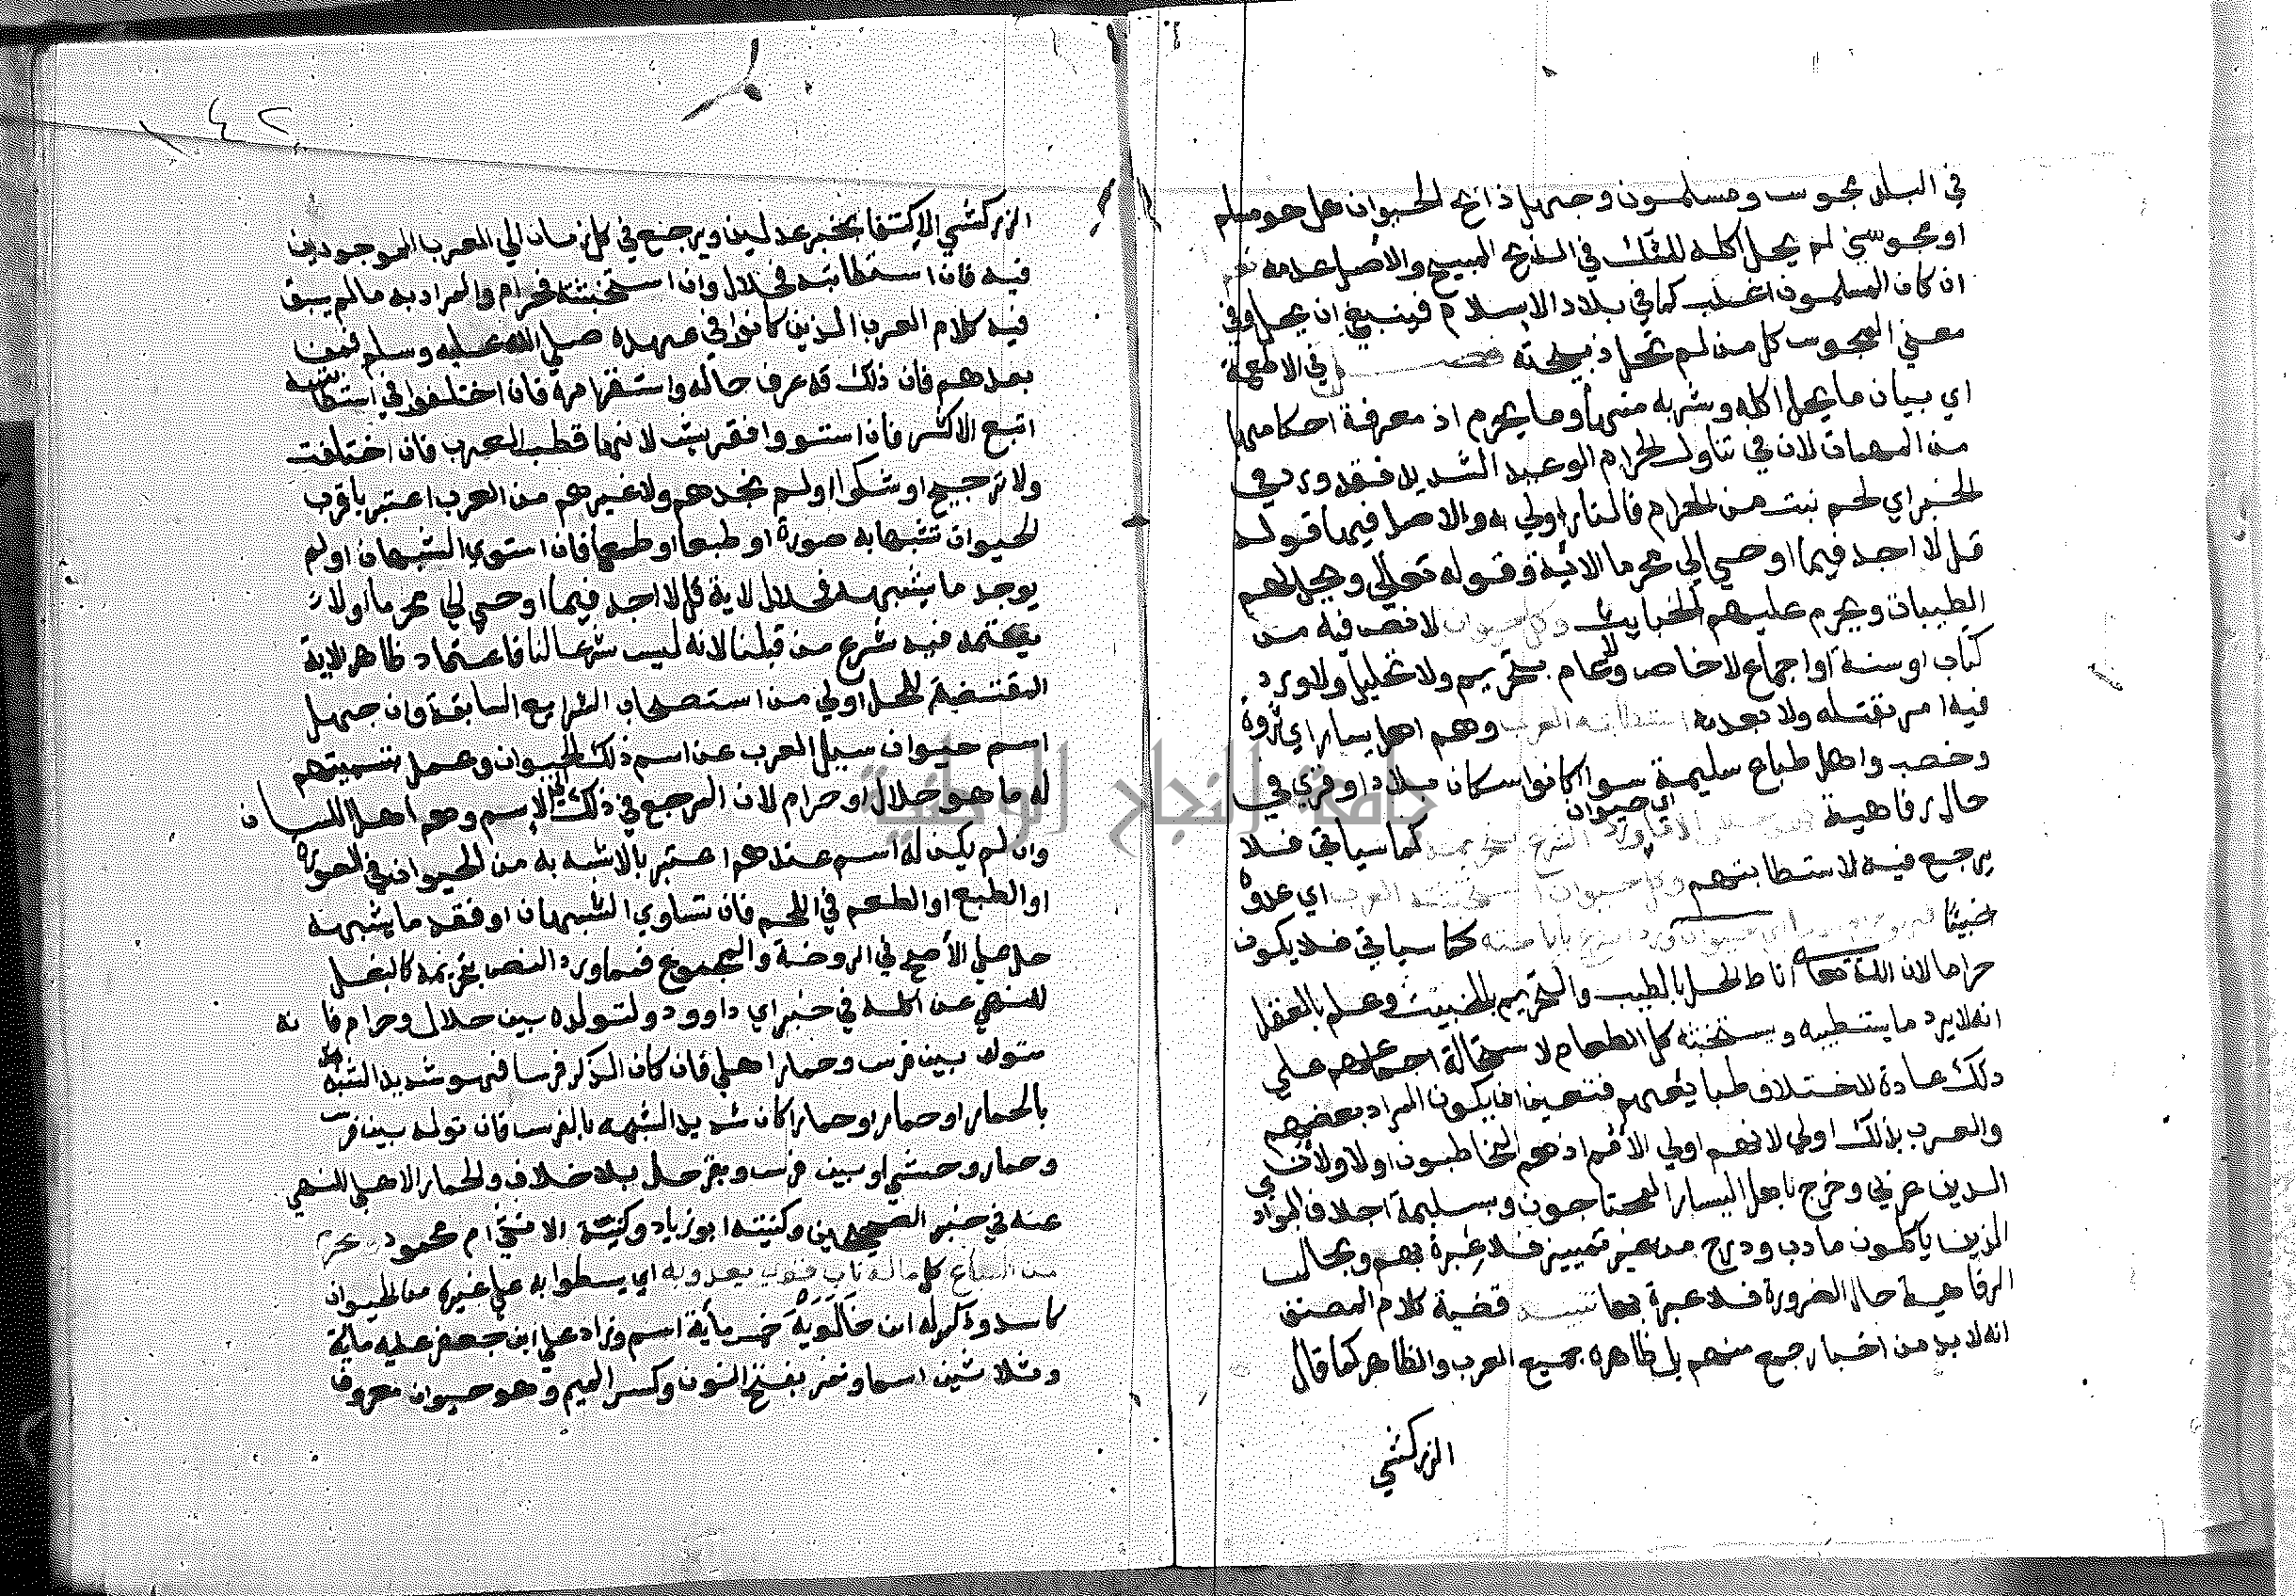 في البلد مجوس ومسلمون وجهل ذابح الحيوان هل هو مسلم
او مجوسي لم يحل اكله للشك في الذبح المبيح والأصل عدمه نعم
ان كان المسلمون اغلب كما في بلاد الاسلام فينبغي ان يحل وفي
معني المجوس كل من لم تحل ذبيحته فصل في الاطعمة
اي بيان ما يحل اكله وشربه منها وما يحرم اذ معرفة احكامها
من المهمات لان في تناول الحرام الوعيد الشديد فقد ورد في
الخبر اي لحم نبت من الحرام فالنار اولي به والاصل فيها قوله
قل لا اجد فيما اوحي الي محرما الاية وقوله تعالي ويحل لهم
الطيبات ويحرم عليهم الخبايث وكل حيوان لا نص فيه من
كتاب او سنة او اجماع لا خاص ولا عام بتحريم ولا تحليل ولا ورد
فيه امر بقتله ولا بعدمه استطابته العرب وهم اهل يسار اي ثروة
وخصب واهل طباع سليمة سوا كانوا سكان بلاد او قري في
حال رفاهية الا ما ورد الشرع بتحريمه كما سياتي فلا
اي حيوان
يرجع فيه لاستطابتهم وكل حيوان استخبثته العرب اي عدوه
خبيثا فهو حرام الا ما اي حيوان ورد الشرع باباحته كما سياتي فلا يكون
حراما لان الله تعالي اناط الحل بالطيب والتحريم بالخبيث وعلم بالعقل
انه لا يرد ما يستطيبه ويستخبثه كل الطعام لاستحالة اجتماعهم علي
ذلك عادة لاختلاف طبايعهم فتعين ان يكون المراد بعضهم
والعرب بذلك اولي لانهم اولي الامم اذ هم المخاطبون اولا ولان
الدين عربي وخرج باهل اليسار المحتاجون وبسليمة اجلاف البوادي
الذين ياكلون ما دب ودرج من غير تمييز فلا عبرة بهم وبحال
الرفاهية حال الضرورة فلا عبرة بها تنبيه قضية كلام المصنف
انه لا بد من اخبار جمع منهم بل ظاهره جميع العرب والظاهر كما قال
الزركشي
٤٢
الزركشي الاكتفا بخبر عدلين ويرجع في كل زمان الي العرب الموجودين
فيه فان استطابته فحلال وان استخبثته فحرام والمراد به ما لم يسبق
فيه كلام العرب الذين كانوا في عهده صلي الله عليه وسلم فمن
بعدهم فان ذلك قد عرف حاله واستقر امره فان اختلفوا في استطابته
اتبع الاكثر فان استووا فقريش لانها قطب العرب فان اختلفت
ولا ترجيح او شكوا او لم نجدهم ولا غيرهم من العرب اعتبر باقرب
الحيوان شبها به صورة او طبعا او طعما فان استوي الشبهان او لم
يوجد ما يشبهه فحلال لاية قل لا اجد فيما اوحي الي محرما ولا
يعتمد فيه شرع من قبلنا لانه ليس شرعا لنا فاعتماد ظاهر الاية
المقتضية للحل اولي من استصحاب الشرايع السابقة وان جهل
اسم حيوان سيل العرب عن اسم ذلك الحيوان وعمل بتسميتهم
له ما هو حلال او حرام لان المرجع في ذلك الي الاسم وهم اهل اللسان
وان لم يكن له اسم عندهم اعتبر بالاشبه به من الحيوان في الصورة
او الطبع او الطعم في اللحم فان تساوي الشبهان او فقد ما يشبهه
حل علي الأصح في الروضة والمجموع فمما ورد النص بتحريمه كالبغل
للنهي عن اكله في خبر ابي داوود ولتولده بين حلال وحرام فانه
متولد بين فرس وحمار اهلي فان كان الذكر فرسا فهو شديد الشبه
بالحمار او حمارا كان شديد الشبه بالفرس فان تولد بين فرس
وحمار وحشي او بين فرس وبقر حل بلا خلاف والحمار الاهلي للنهي
عنه في خبر الصحيحين وكنيته ابو زياد وكنية الانثي ام محمود ويحرم
من السباع كل ما له ناب قوي يعدو به اي يسطوا به علي غيره من الحيوان
كاسد وذكر له ابن خَالَوَيْهِ خمسماية اسم وزاد علي ابن جعفر عليه ماية
وثلاثين اسما ونمر بفتح النون وكسر الميم وهو حيوان معروف
جامعة النجاح الوطنية